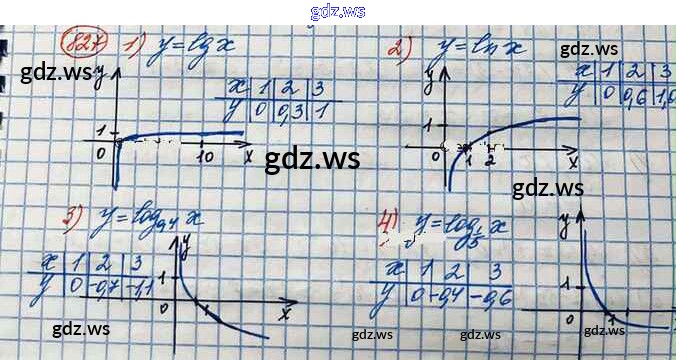 gdz.ws
827 1) y = lg x
2) y = ln x
gdz.ws
gdz.ws
x 1 2 3
y 0 0,3 1
x 1 2 3
y 0 0,6 1,0
y
1
0 10 x
y
1
0 1 2 x
gdz.ws
gdz.ws
3) y = log0,4 x
4) y = log1/5 x
x 1 2 3
y 0 -0,7 -1,1
x 1 2 3
y 0 -0,4 -0,6
y
1
0 x
y
1
0
gdz.ws
gdz.ws
gdz.ws